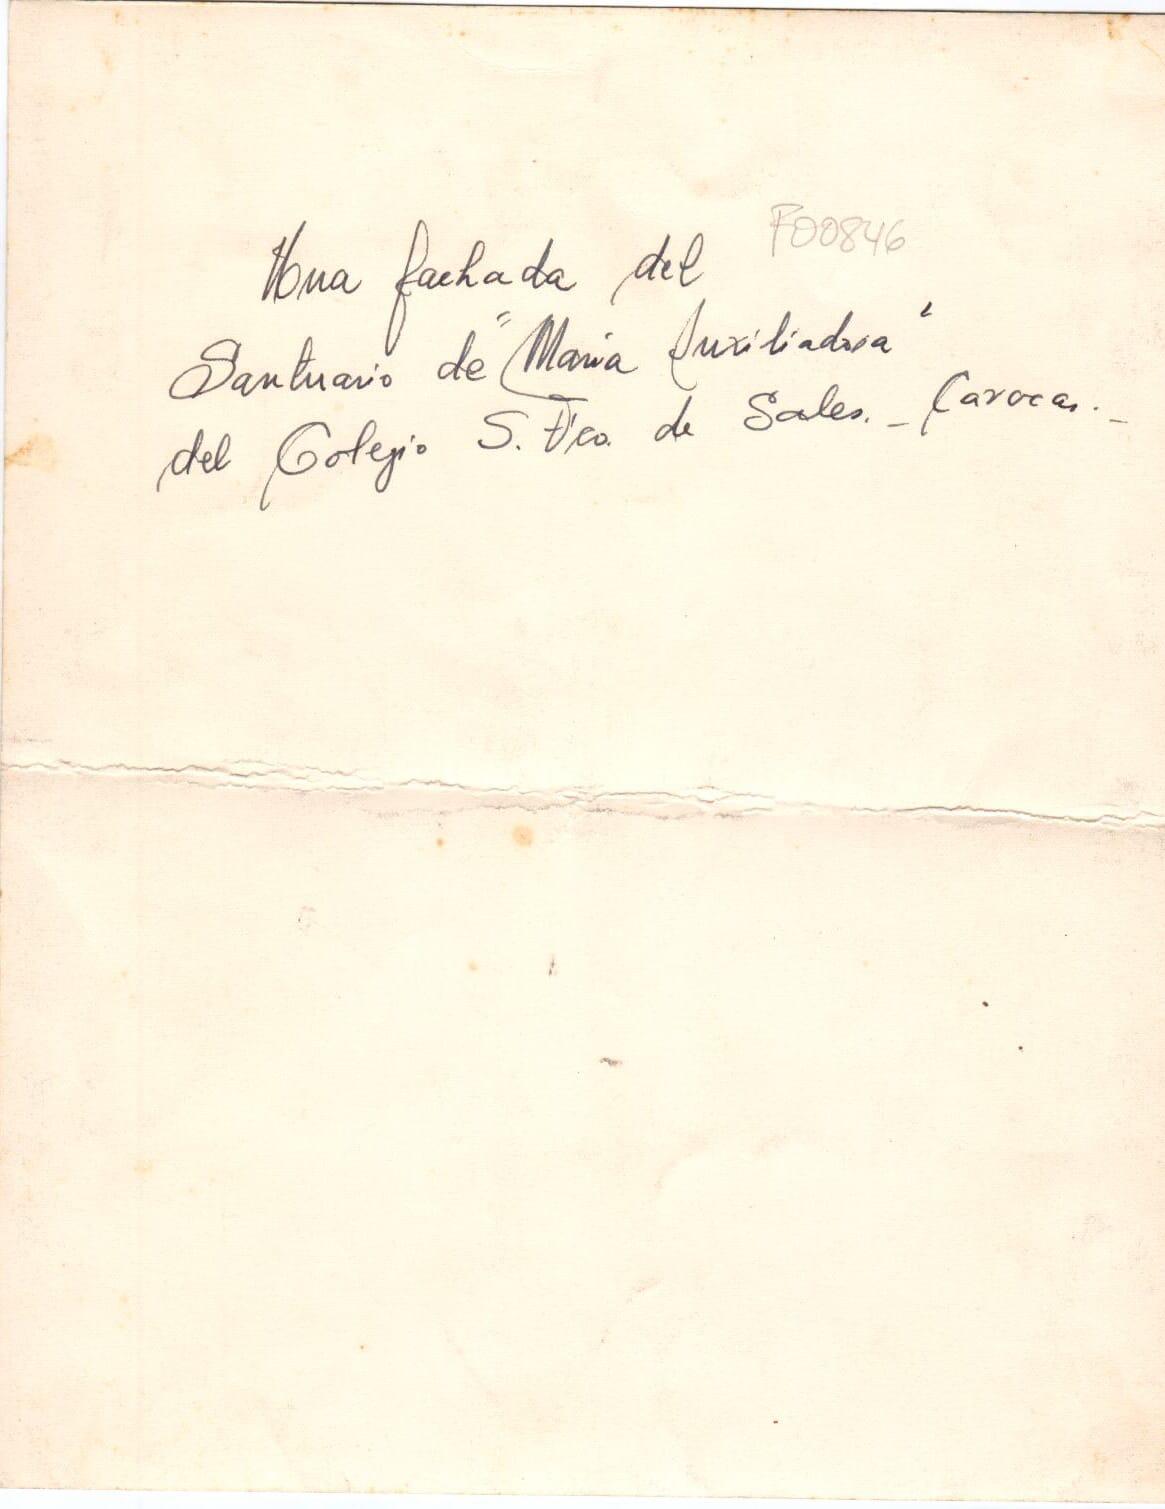 Una fachada del
F00846
Santuario de "Maria Auxiliadora"
del Colegio S. Fco. de Sales. _ Caracas. _